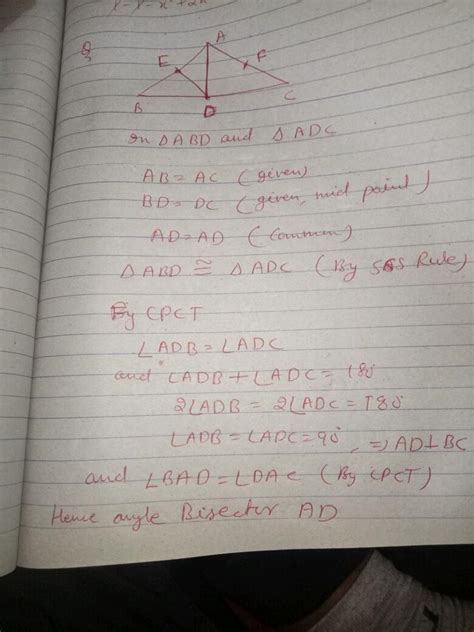 Q
A
E
F
B
D
C
In △ABD and △ADC
AB = AC (given)
BD = DC (given, mid point)
AD = AD (Common)
△ABD ≅ △ADC (By SSS Rule)
By CPCT
∠ADB = ∠ADC
and ∠ADB + ∠ADC = 180
2∠ADB = 2∠ADC = 180
∠ADB = ∠ADC = 90, ⇒ AD⊥BC
and ∠BAD = ∠DAC (By CPCT)
Hence angle Bisector AD